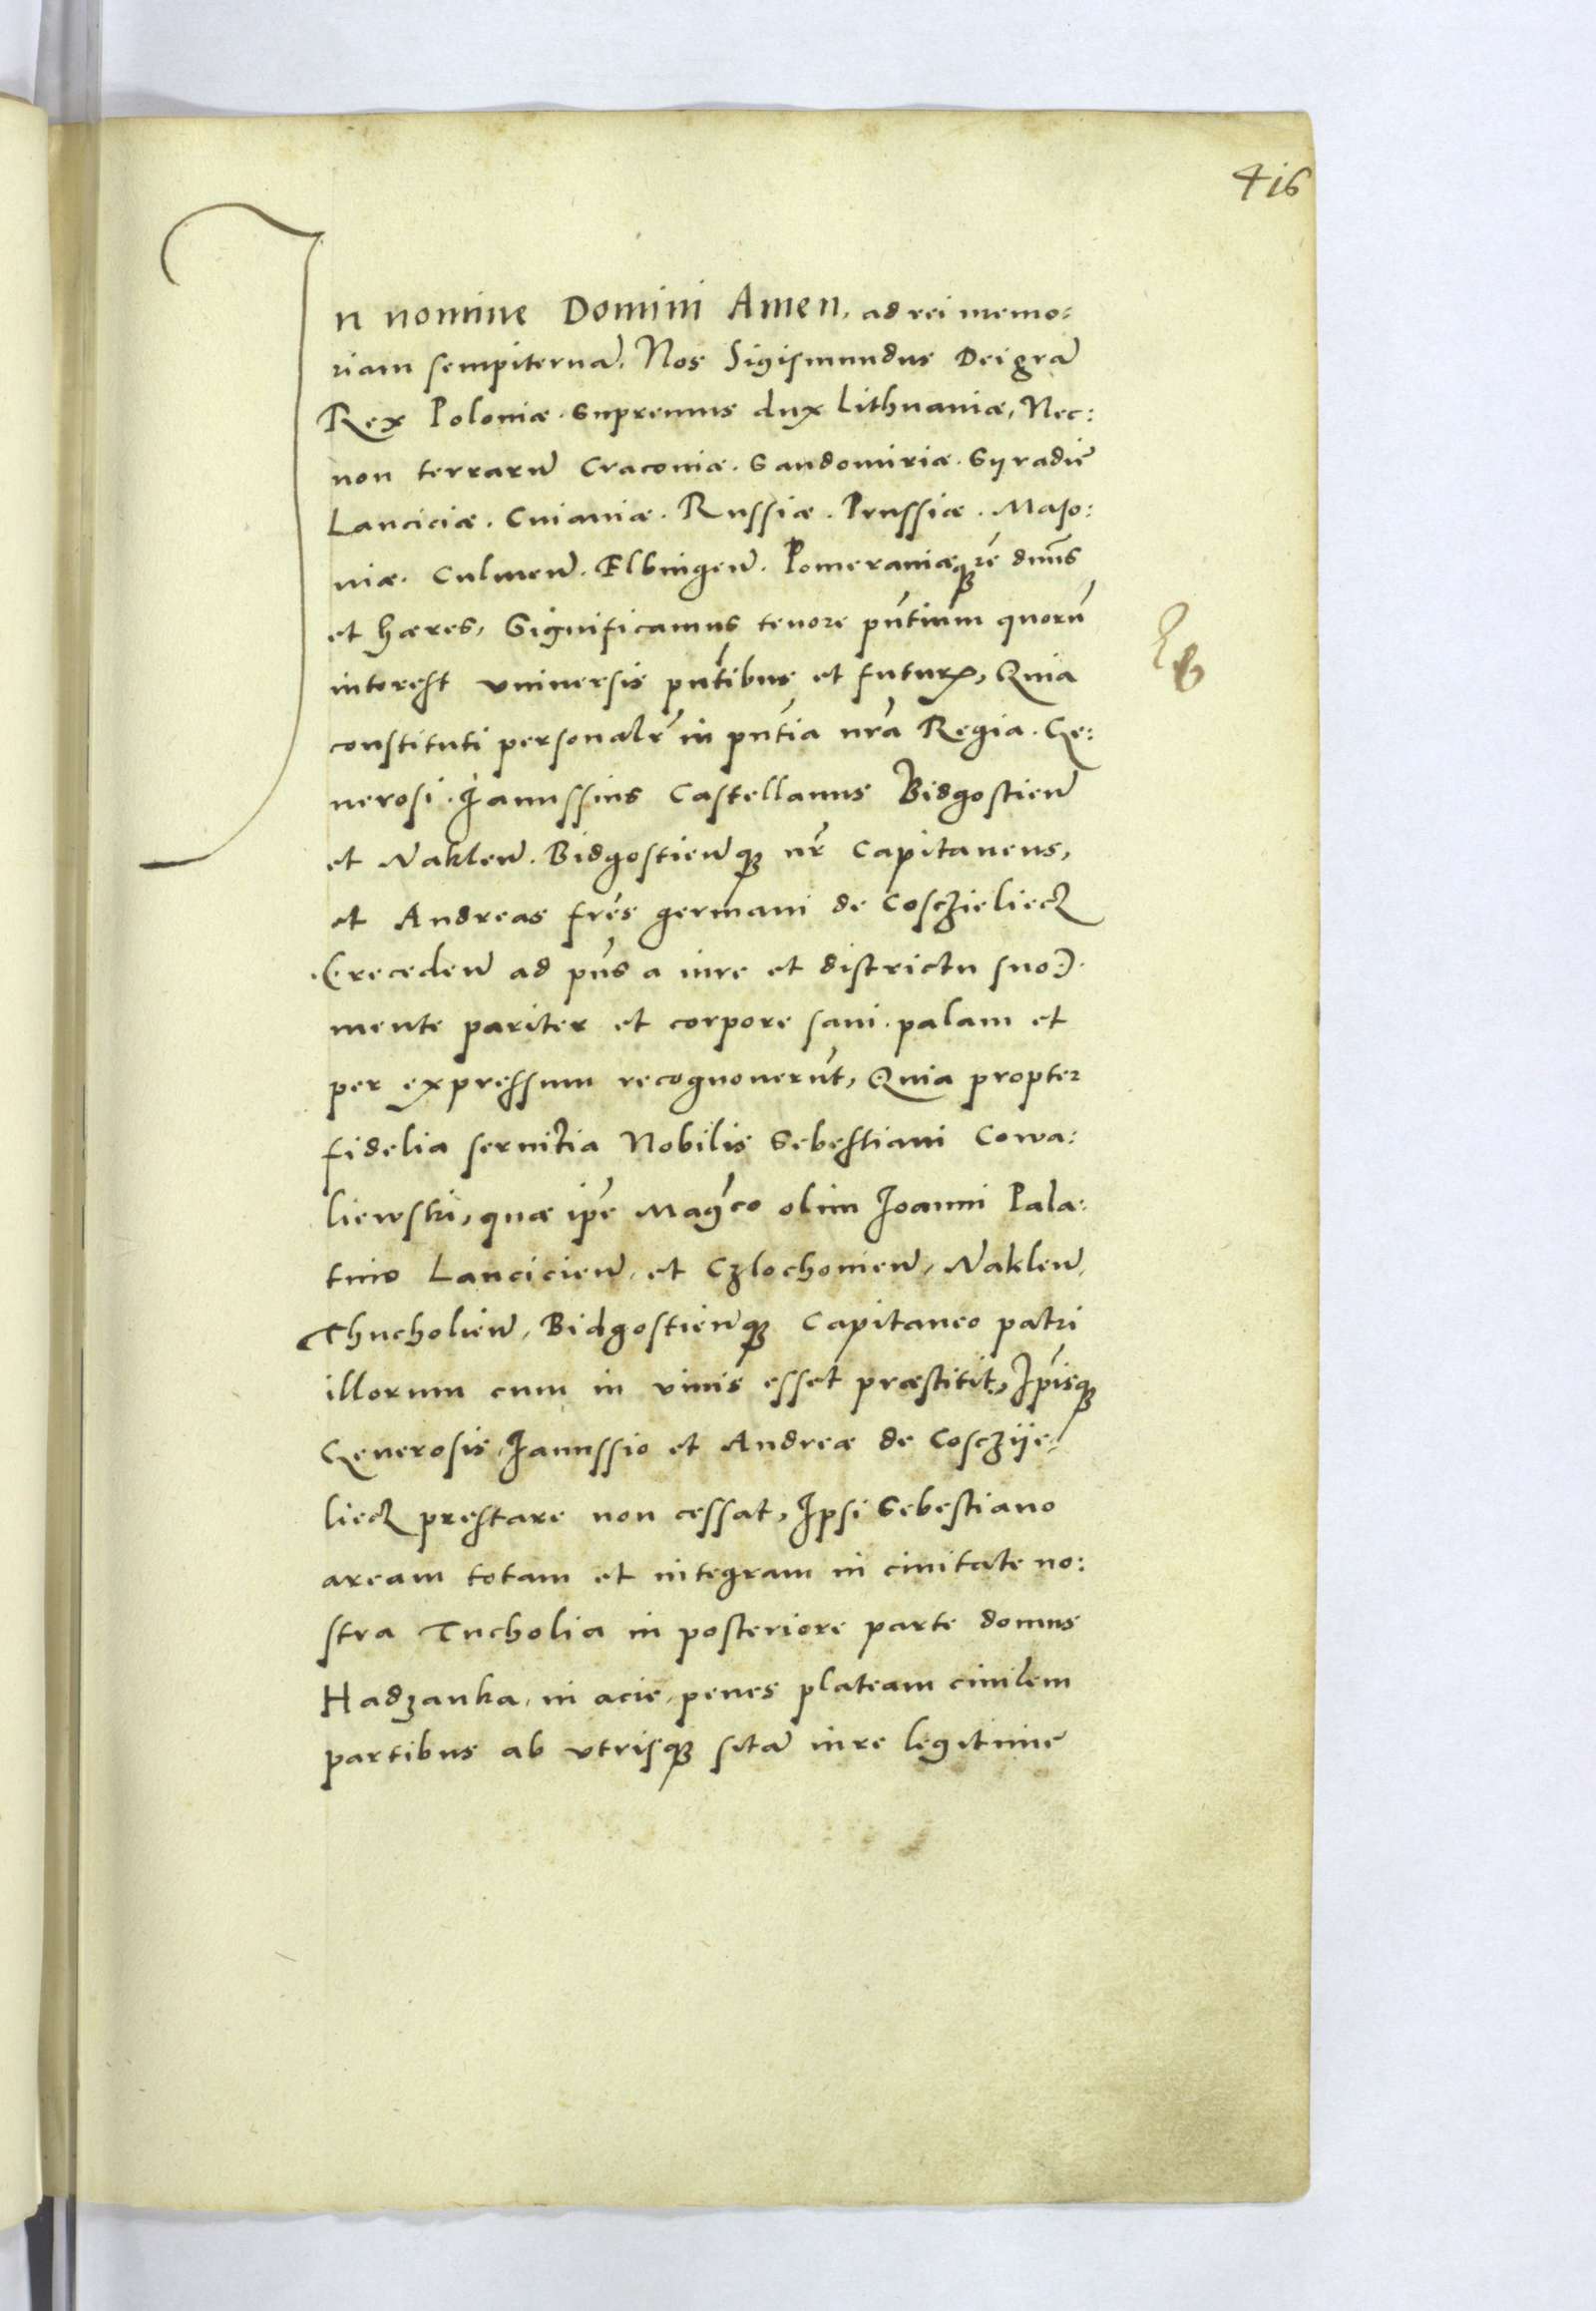 416
In nomine Domini Amen, ad rei memo:
riam sempiternã. Nos Sigismundus Dei grã
Rex Poloniæ. Supremus dux Lithuaniæ, Nec:
non terrarũ Cracoviæ. Sandomiriæ. Syradiẽ
Lanciciæ. Cuiaviæ. Russiæ. Prussiæ. Maso:
viæ. Culmeñ. Elbingeñ. Pomeraniæq3 rẽ dñus
et hæres, Significamus tenore pñtium quorũ
interest universis pñtibus et futurꝝ, Quia
constituti personalr̃ in pñtia nrã Regia. Ge:
nerosi. Janussius Castellanus Bidgostieñ
et Nakleñ. Bidgostieñq3 nr̃ Capitaneus,
et Andreas frẽs germani de Cosczieliecz
.(:recedeñ ad pñs a iure et districtu suo:).
mente pariter et corpore sani. palam et
per expressum recognoverũt, Quia propter
fidelia servitia Nobilis Sebestiani Cowa:
liewski, quæ ipẽ Magco olim Joanni Pala:
tino Lancicieñ, et Czlochovieñ, Nakleñ,
Thucholieñ, Bidgostieñq3 Capitaneo patri
illorum cum in vivis esset præstitit, Ipisq3
Generosis Janussio et Andreæ de Cosczije:
liecz prestare non cessat, Ipsi Sebestiano
aream totam et integram in civitate no:
stra Tucholia in posteriore parte domus
Hadzanka, in acie, penes plateam civilem
partibus ab utrisq3 sitã iure legitime